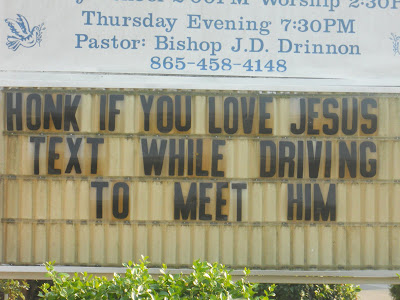 Worship 2:30P
Thursday Evening 7:30PM
Pastor: Bishop J.D. Drinnon
865-458-4148
HONK IF YOU LOVE JESUS
TEXT WHILE DRIVING
TO MEET HIM